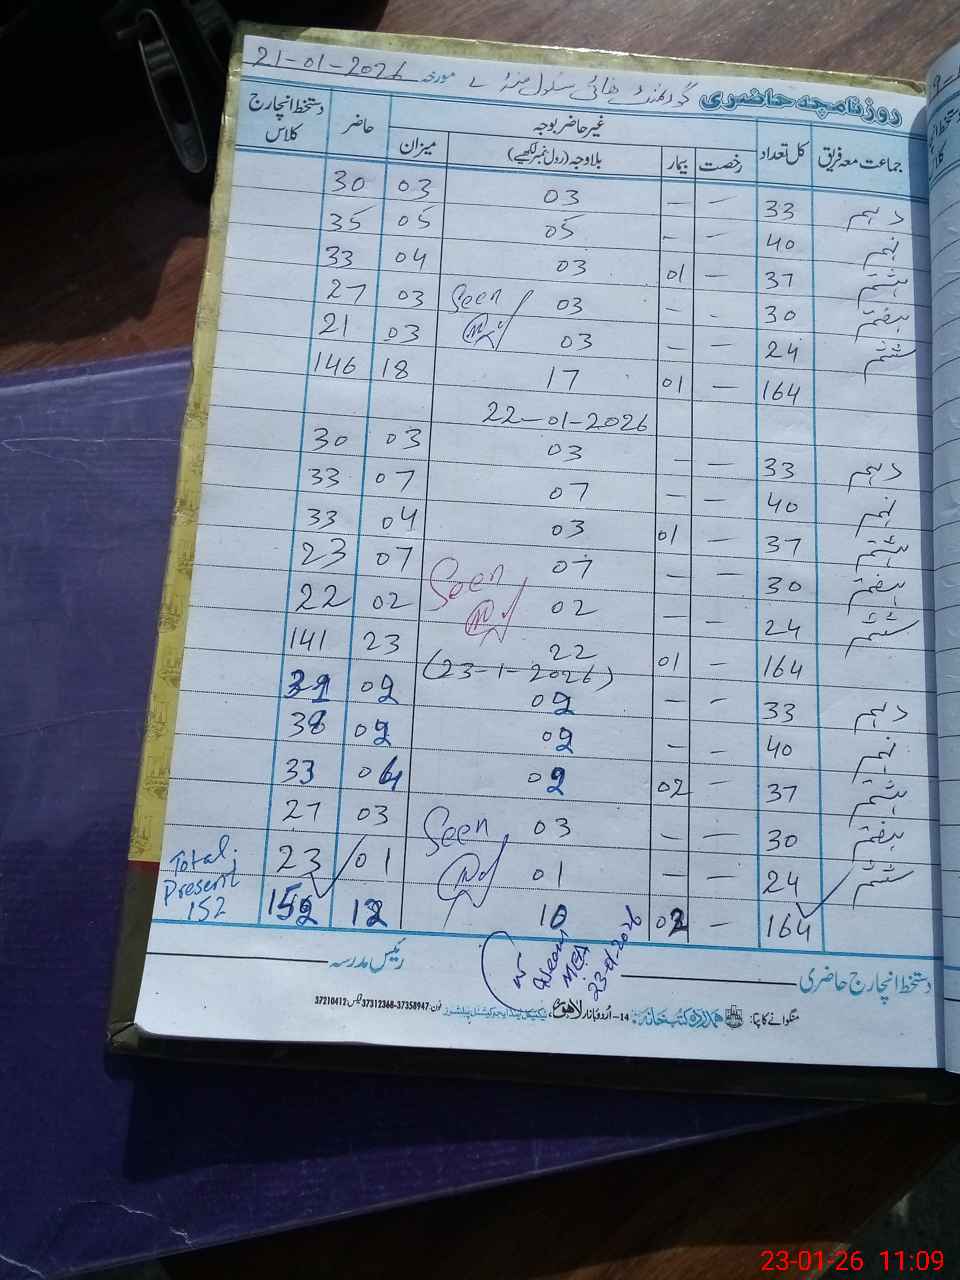 روزنامچہ حاضری گورنمنٹ ہائی سکول مورخہ 21-01-2026
جماعت معہ فریق کل تعداد غیر حاضر بوجہ حاضر دستخط انچارج کلاس
رخصت بیمار بلاوجہ (رول نمبر لکھیے) میزان
دہم 33 — — 03 03 30
نہم 40 — — 05 05 35
ہشتم 37 — 01 03 04 33
ہفتم 30 — — 03 03 27
ششم 24 — — 03 03 21
Seen
164 — 01 17 18 146
22-01-2026
دہم 33 — — 03 03 30
نہم 40 — — 07 07 33
ہشتم 37 — 01 03 04 33
ہفتم 30 — — 07 07 23
ششم 24 — — 02 02 22
Seen
164 — 01 22 23 141
(23-1-2026)
دہم 33 — — 02 02 31
نہم 40 — — 02 02 38
ہشتم 37 — 02 02 04 33
ہفتم 30 — — 03 03 27
ششم 24 — — 01 01 23
Seen
164 — 02 10 12 152
Total
Present
152
MEA
23-01-2026
دستخط انچارج حاضری
رئیس مدرسہ
منگوانے کا پتہ: ہمدرد کتب خانہ 14-اُردو بازار لاہور، فون: 37358947-37312368 فیکس: 37210412
23-01-26 11:09